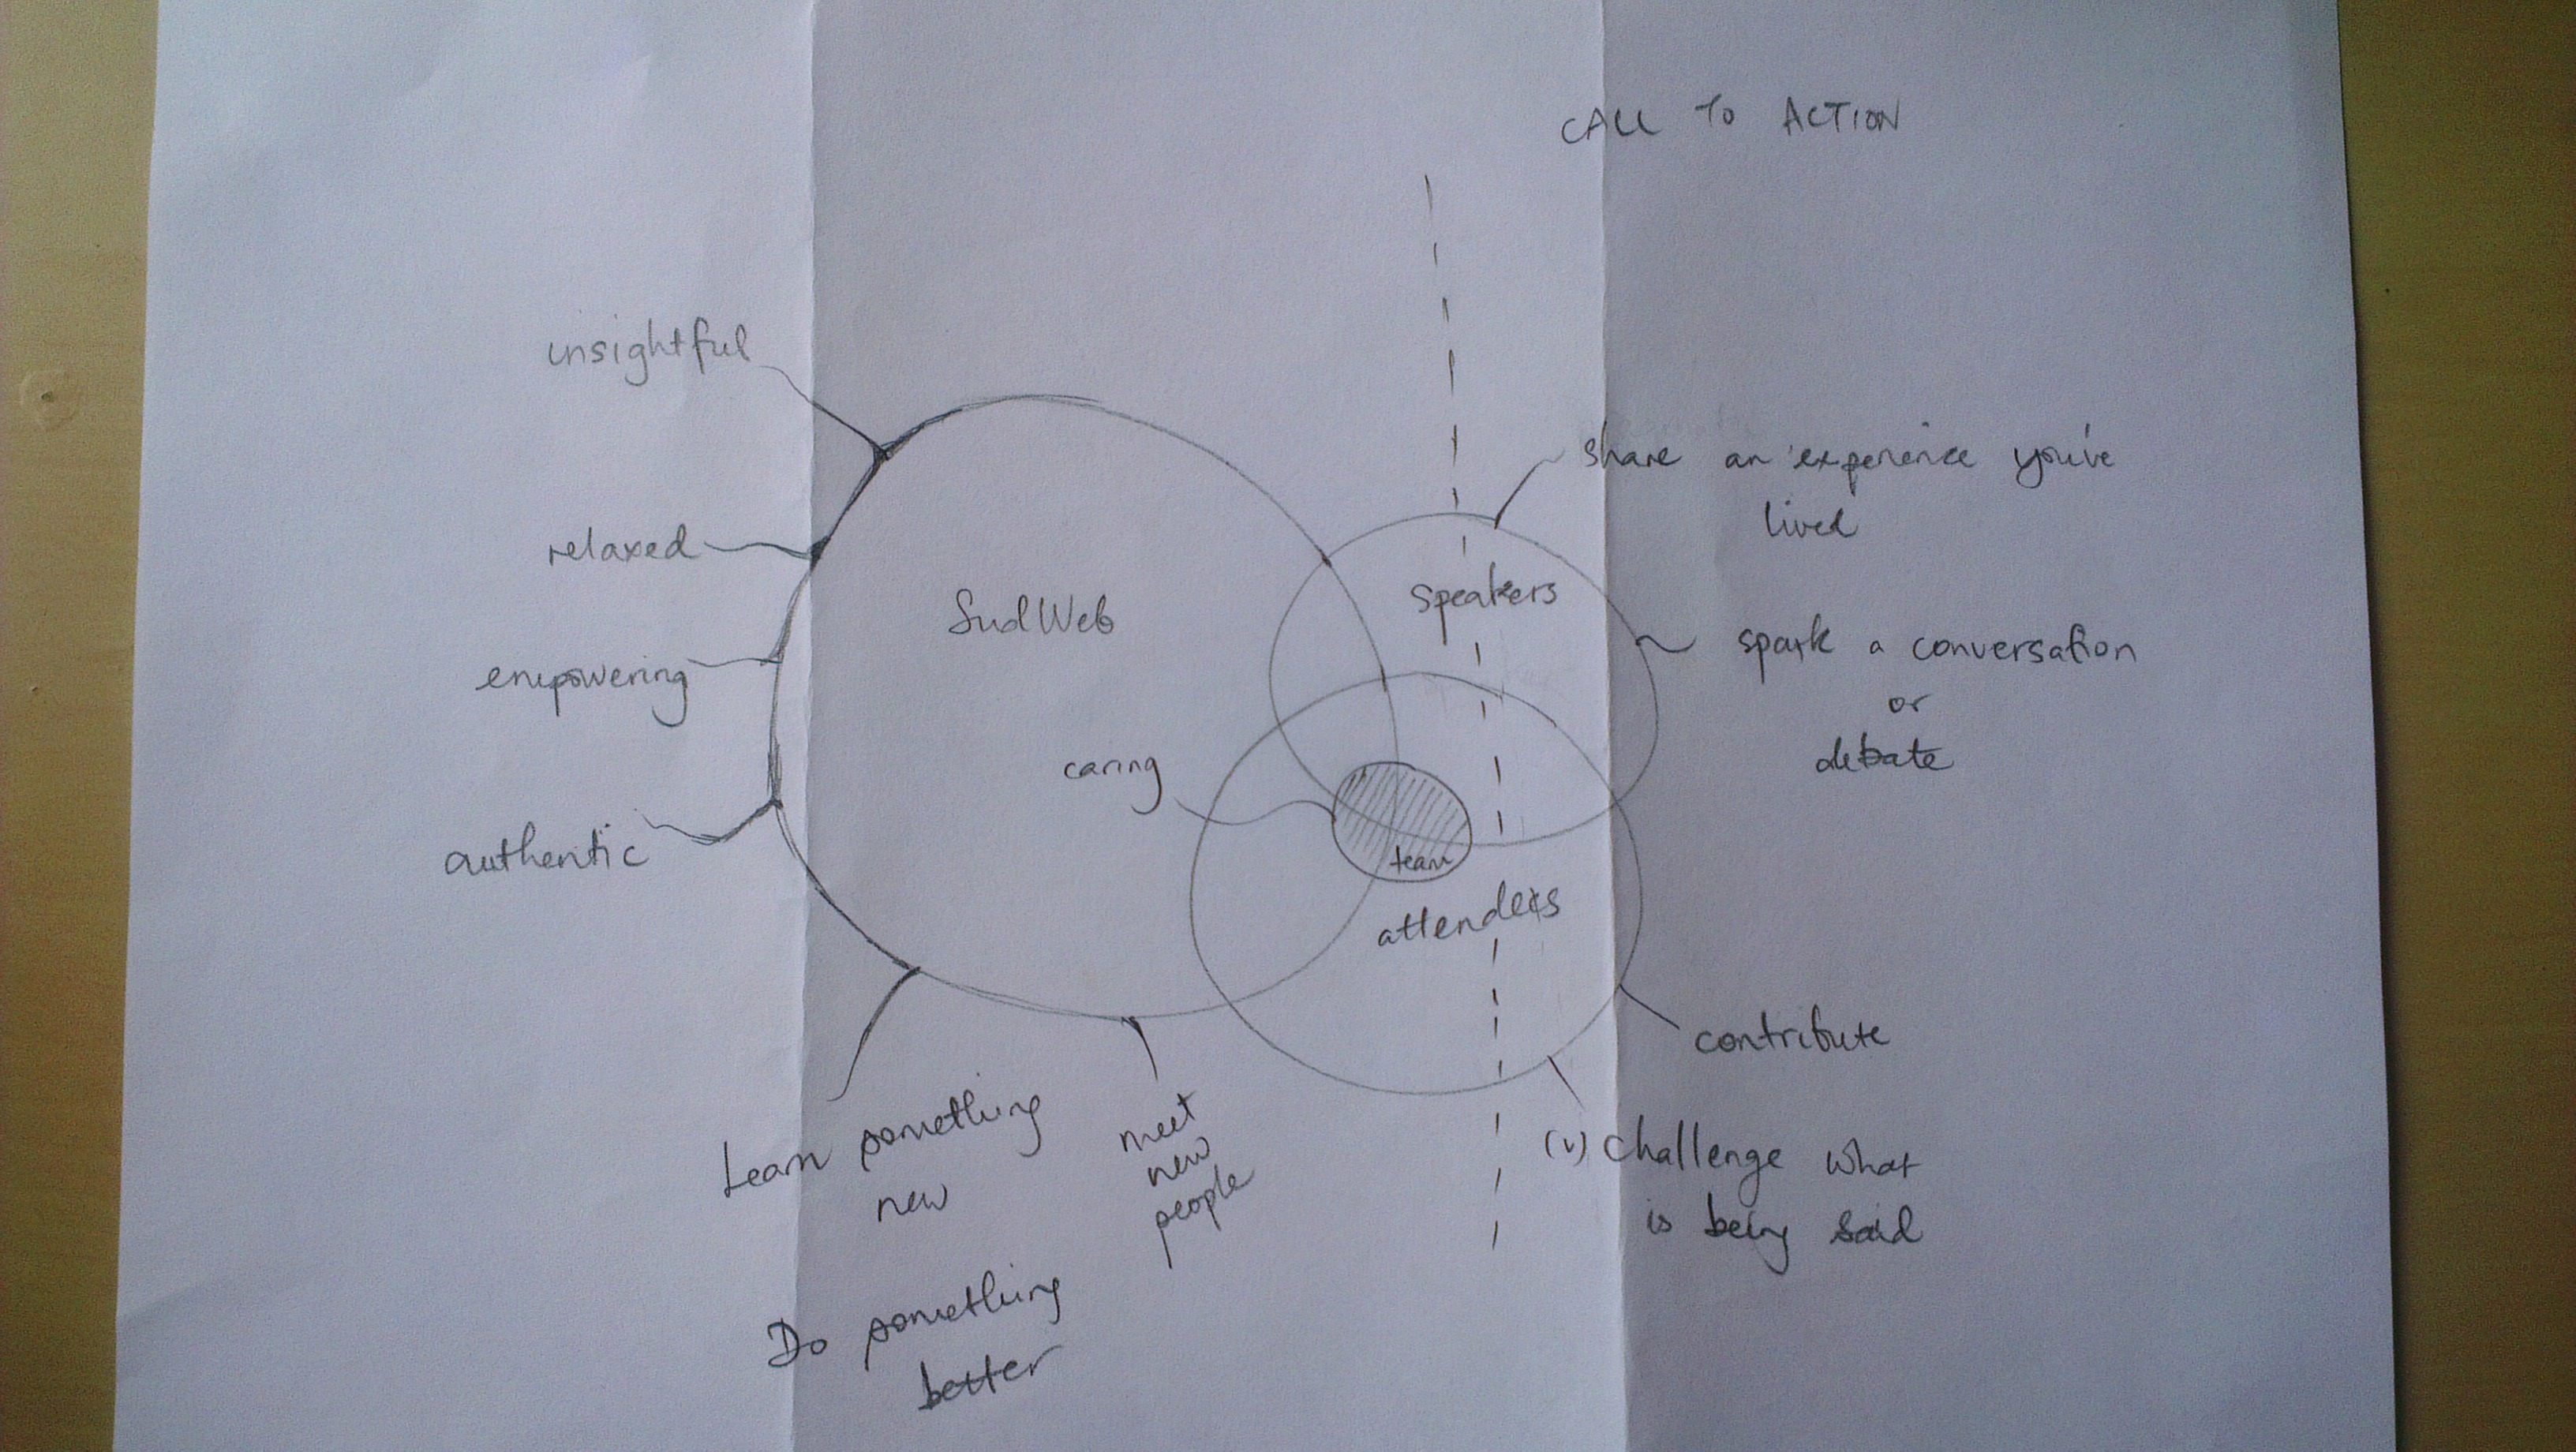 CALL TO ACTION
insightful
relaxed
empowering
authentic
SudWeb
caring
team
speakers
attendees
share an experience you've
lived
spark a conversation
or
debate
contribute
(v) challenge what
is being said
Learn something
new
meet
new
people
Do something
better